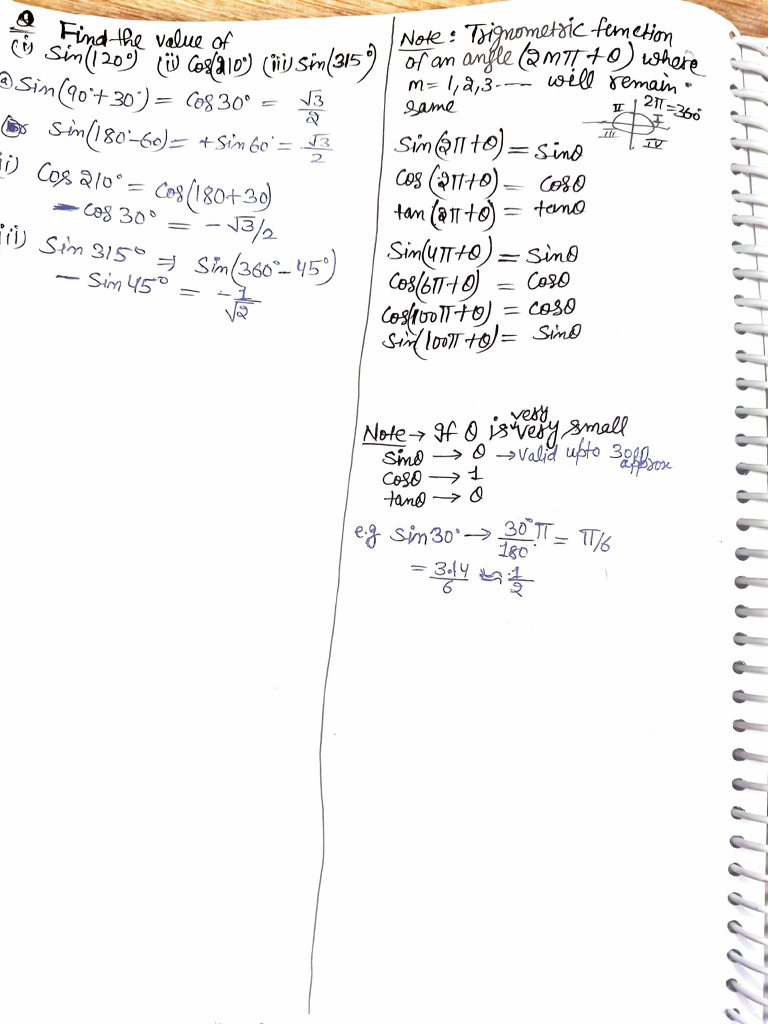 Q Find the value of
(i) Sin(120°) (ii) Cos(210°) (iii) Sin(315°)
(a) Sin(90°+30°) = Cos30° = √3/2
or Sin(180°-60) = + Sin60° = √3/2
ii) Cos 210° = Cos(180+30)
- cos 30° = - √3/2
iii) Sin 315° ⇒ Sin(360°-45°)
- Sin 45° = -1/√2
Note: Trignometric function
of an angle (2mπ+θ) where
m = 1,2,3---- will remain
same
II 2π=360°
I
III
IV
Sin(2π+θ) = Sinθ
Cos(2π+θ) = Cosθ
tan(2π+θ) = tanθ
Sin(4π+θ) = Sinθ
Cos(6π+θ) = Cosθ
Cos(100π+θ) = Cosθ
Sin(100π+θ) = Sinθ
Note → If θ is very very small
Sinθ → θ → Valid upto 30° approx
Cosθ → 1
tanθ → θ
e.g Sin30° → 30°π/180° = π/6
= 3.14/6 ≈ 1/2